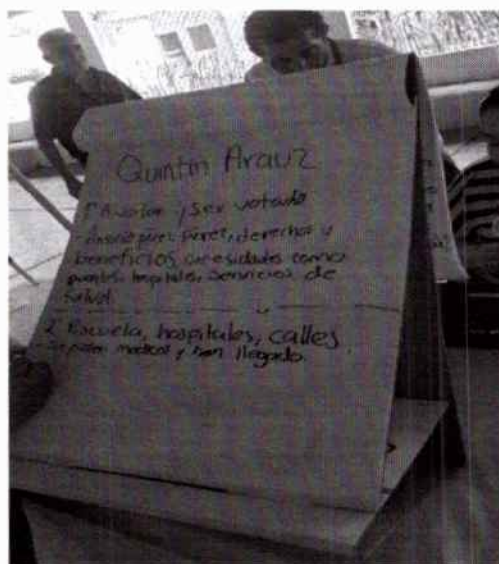 Quintin Arauz
1 A votar y ser votado
derechos y
beneficios necesidades como
puentes, hospitales, servicios de
salud.
2 Escuela, hospitales, calles.
medicos y han llegado.